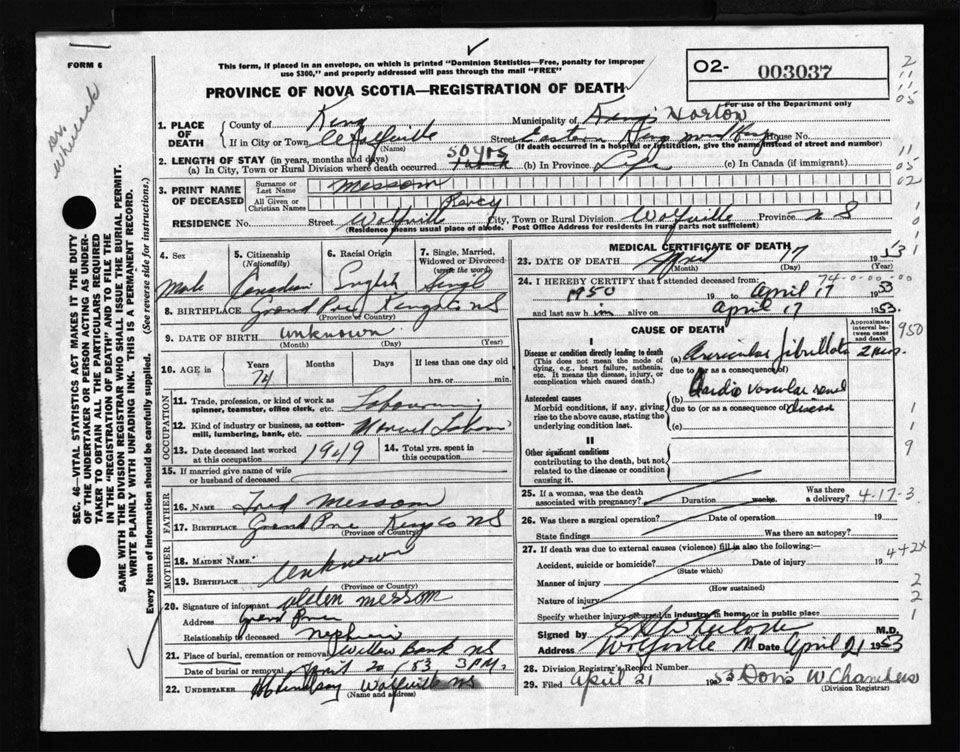 FORM 6
This form, if placed in an envelope, on which is printed "Dominion Statistics—Free, penalty for improper
use $300," and properly addressed will pass through the mail "FREE"
O2- 003037
For use of the Department only
PROVINCE OF NOVA SCOTIA—REGISTRATION OF DEATH
Dr. Wheelock
1. PLACE OF DEATH
County of King Municipality of Kings Horton
If in City or Town Wolfville (Name) Street Eastern Kings House No.
(If death occurred in a hospital or institution, give the name instead of street and number)
2. LENGTH OF STAY (in years, months and days)
(a) In City, Town or Rural Division where death occurred 50 yrs (b) In Province Life (c) In Canada (if immigrant)
3. PRINT NAME OF DECEASED
Surname or Last Name Messom
All Given or Christian Names Percy
RESIDENCE No. Street Wolfville City, Town or Rural Division Wolfville Province N S
(Residence means usual place of abode. Post Office Address for residents in rural parts not sufficient)
4. Sex Male
5. Citizenship (Nationality) Canadian
6. Racial Origin English
7. Single, Married, Widowed or Divorced (write the word) Singl
8. BIRTHPLACE Grand Pre Kings Co NS
(Province or Country)
9. DATE OF BIRTH unknown
(Month) (Day) (Year)
10. AGE in Years 74 Months Days If less than one day old
hrs. or min.
OCCUPATION
11. Trade, profession, or kind of work as
spinner, teamster, office clerk, etc. Labourer
12. Kind of industry or business, as cotton-
mill, lumbering, bank, etc.
13. Date deceased last worked
at this occupation 1949
14. Total yrs. spent in
this occupation
15. If married give name of wife
or husband of deceased
FATHER
16. NAME Fred Messom
17. BIRTHPLACE Grand Pre Kings Co NS
(Province or Country)
MOTHER
18. MAIDEN NAME Unknown
19. BIRTHPLACE
(Province or Country)
20. Signature of informant Helen Messom
Address Grand Pre
Relationship to deceased
21. Place of burial, cremation or removal Willow Bank NS
Date of burial or removal April 20 /53 3 P.M.
22. UNDERTAKER Lindsay Wolfville NS
(Name and address)
MEDICAL CERTIFICATE OF DEATH
23. DATE OF DEATH April 17
(Month) (Day) (Year)
74-0-00-00
24. I HEREBY CERTIFY that I attended deceased from:
1950 19 to April 17 1953
and last saw him alive on April 17 1953.
CAUSE OF DEATH
Approximate interval between onset and death
I
Disease or condition directly leading to death
(This does not mean the mode of dying, e.g., heart failure, asthenia, etc. It means the disease, injury, or complication which caused death.)
(a) Auricular fibrillation
due to (or as a consequence of)
Antecedent causes
Morbid conditions, if any, giving rise to the above cause, stating the underlying condition last.
(b) Cardio vascular renal disease
due to (or as a consequence of)
(c)
II
Other significant conditions
contributing to the death, but not related to the disease or condition causing it.
25. If a woman, was the death
associated with pregnancy? Duration weeks. Was there a delivery?
4-17-3
26. Was there a surgical operation? Date of operation 19
State findings Was there an autopsy?
27. If death was due to external causes (violence) fill in also the following:
442X
Accident, suicide or homicide? Date of injury 19
(State which)
Manner of injury
(How sustained)
Nature of injury
Specify whether injury occurred in industry in home, or in public place
Signed by M.D.
Address Wolfville Date April 21 1953
28. Division Registrar's Record Number
29. Filed April 21 1953 Doris W. Chambers
(Division Registrar)
SEC. 46—VITAL STATISTICS ACT MAKES IT THE DUTY
OF THE UNDERTAKER OR PERSON ACTING AS UNDER-
TAKER TO OBTAIN ALL THE PARTICULARS REQUIRED
IN THE "REGISTRATION OF DEATH" AND TO FILE THE
SAME WITH THE DIVISION REGISTRAR WHO SHALL ISSUE THE BURIAL PERMIT.
WRITE PLAINLY WITH UNFADING INK. THIS IS A PERMANENT RECORD.
Every item of Information should be carefully supplied. (See reverse side for instructions.)